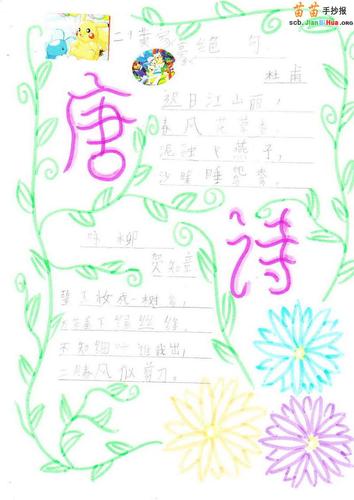 苗苗手抄报
scb.JianBiHua.ORG
绝句
杜甫
迟日江山丽,
春风花草香。
泥融飞燕子,
沙暖睡鸳鸯。
唐诗
咏柳
贺知章
妆成一树
下绿丝绦。
不知细 谁裁出,
二月春风似剪刀。